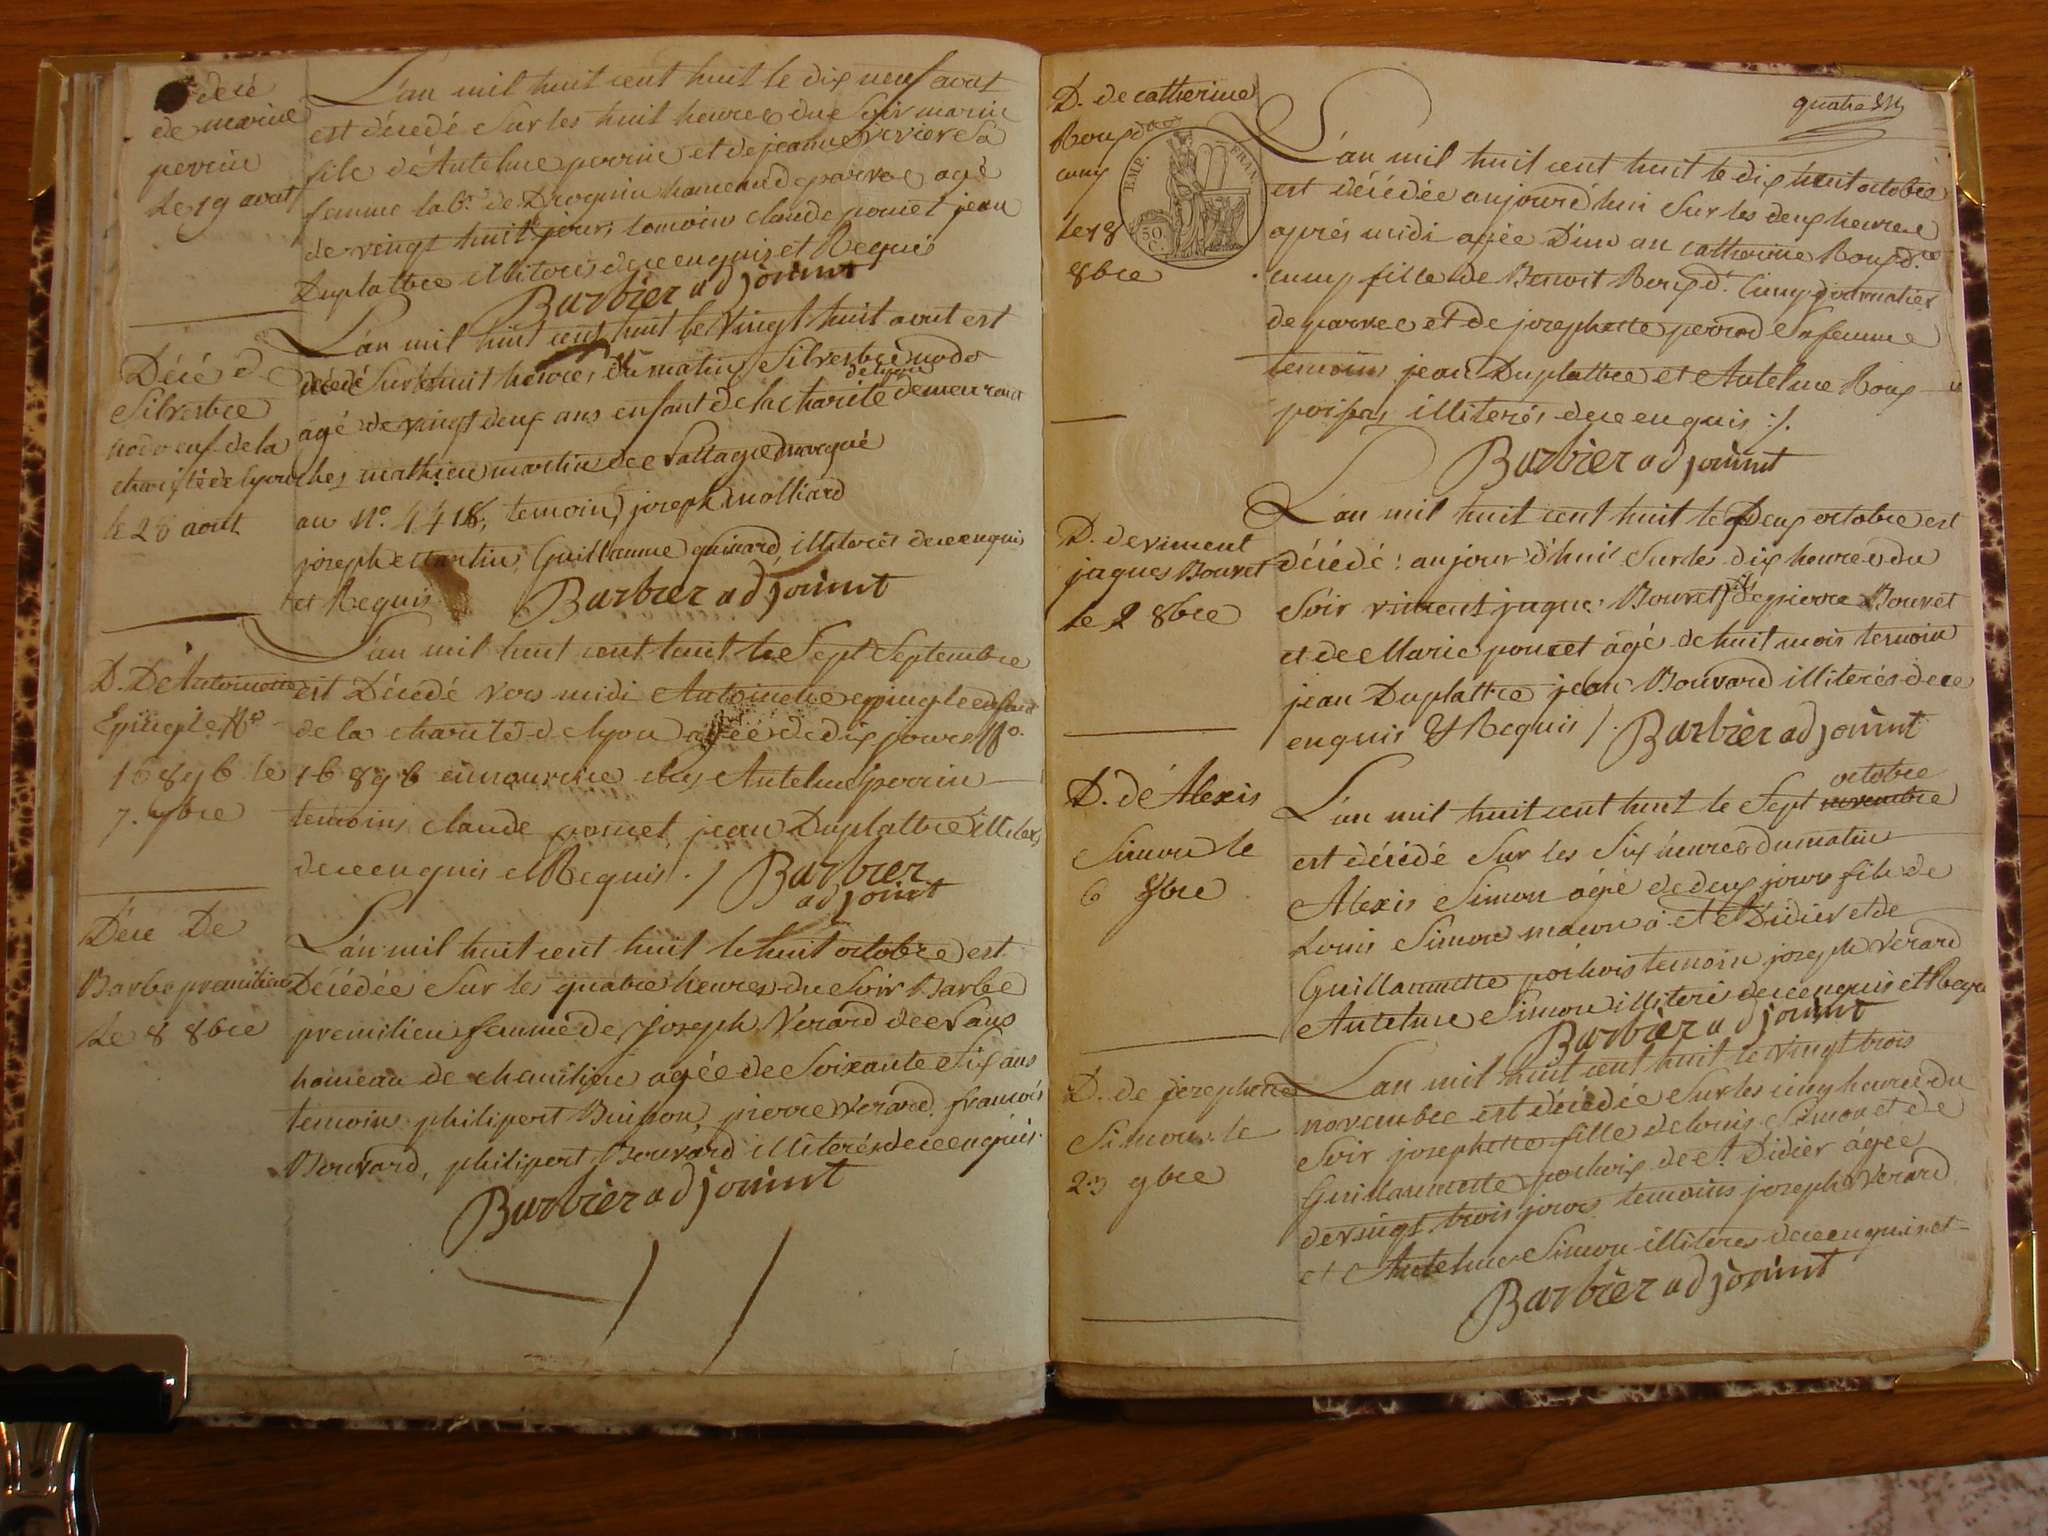 décé
de marine
perrine
Le 19 aout
L'an mil huit cent huit le dix neuf aout
est décedé Sur les huit heures du Soir marin
fils d'Antelme perrin et de jeanne vivier Sa
femme lab.r de Drognin hameau de parves agé
de vingt huit jours temoins claude poncet jean
Duplattre illiterés de ce enquis et Requis
Barbier adjoint
Décé d
Silvestre
nodo enf. de la
charité de Lyon
le 28 aout
L'an mil huit cent huit le vingt huit aout est
décedé Sur les huit heures du matin Silvestre nodo
de Lyon
agé de vingt deux ans enfant de la charité demeurant
ches mathieu martin de
au N.o 4418, temoins joseph molliard
joseph martin Guillaume guinard illiterés de ce enquis
et Requis
Barbier adjoint
D. D'Antoinette
Epingle N.o
16896 le
7. 7bre
L'an mil huit cent huit le Sept Septembre
est Décedé vers midi Antoinette epingle enfant
de la charité de Lyon agée de dix jours N.o
16896 en nourrice ches Antelme perrin
temoins claude poncet jean Duplattre
de ce enquis et Requis . / Barbier
adjoint
Déce De
Barbe premilieu
Le 8 8bre
L'an mil huit cent huit le huit octobre est
Décédée Sur les quatre heures du Soir Barbe
premilieu femme de joseph Verard de
hameau de chemilieu agée de Soixante Six ans
temoins philipert Buisson, pierre Verard, francois
Bouvard, philipert Bouvard illiterés de ce enquis.
Barbier adjoint
quatre
D. de catherine
Roux d.t
cumy
le 18
8bre
EMP. FRAN.
50
C.
L'an mil huit cent huit le dix huit octobre
est décédée aujourd'hui Sur les deux heures
aprés midi agée D'un an catherine Roux d.te
cumy fille de Benoit Roux d.t Cumy journalier
de parves et de josephette perrod Sa femme
temoins jean Duplattre et Antelme Roux
illiterés de ce enquis ./.
Barbier adjoint
D. de vincent
jaques Bouvet
le 2 8bre
L'an mil huit cent huit le Deux octobre est
décédé aujour d'hui Sur les dix heures du
Soir vincent jaque Bouvet fils de pierre Bouvet
et de Marie poncet agé de huit mois temoin
jean Duplattre jean Bouvard illiterés de ce
enquis & Requis /. Barbier adjoint
D. de Alexis
Simon le
6 8bre
octobre
L'an mil huit cent huit le Sept novembre
est décédé Sur les Six heures du matin
Alexis Simon agé de deux jours fils de
Louis Simon macon a St Didier et de
Guillaumette pochois temoin joseph Verard
Antelme Simon illiteré de ce enquis et Requis
Barbier adjoint
D. de josephette
Simon le
23 9bre
L'an mil huit cent huit le vingt trois
novembre est décédée Sur les cinq heures du
Soir josephette fille de louis Simon et de
Guillaumette pochoix de St Didier agée
de vingt trois jours temoins joseph Verard
et Antelme Simon illiteres de ce enquis et
Barbier adjoint